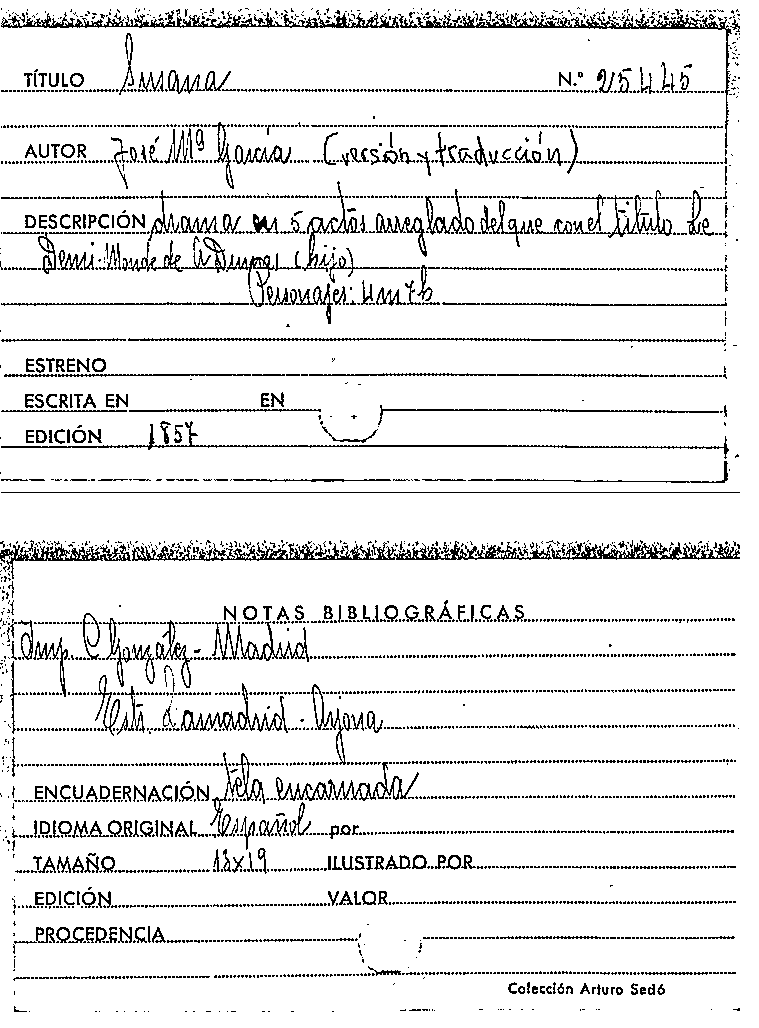 TÍTULO Susana N.º 25445
AUTOR José Mª García (versión y traducción)
DESCRIPCIÓN drama en 5 actos arreglado del que con el titulo Le
Demi-Monde de A Dumas (hijo)
Personajes: 4m 7h
ESTRENO
ESCRITA EN EN
EDICIÓN 1857
NOTAS BIBLIOGRÁFICAS
Imp. C González - Madrid
Estr. Lamadrid - Arjona
ENCUADERNACIÓN tela encarnada
IDIOMA ORIGINAL Español por
TAMAÑO 13x19 ILUSTRADO POR
EDICIÓN VALOR
PROCEDENCIA
Colección Arturo Sedó